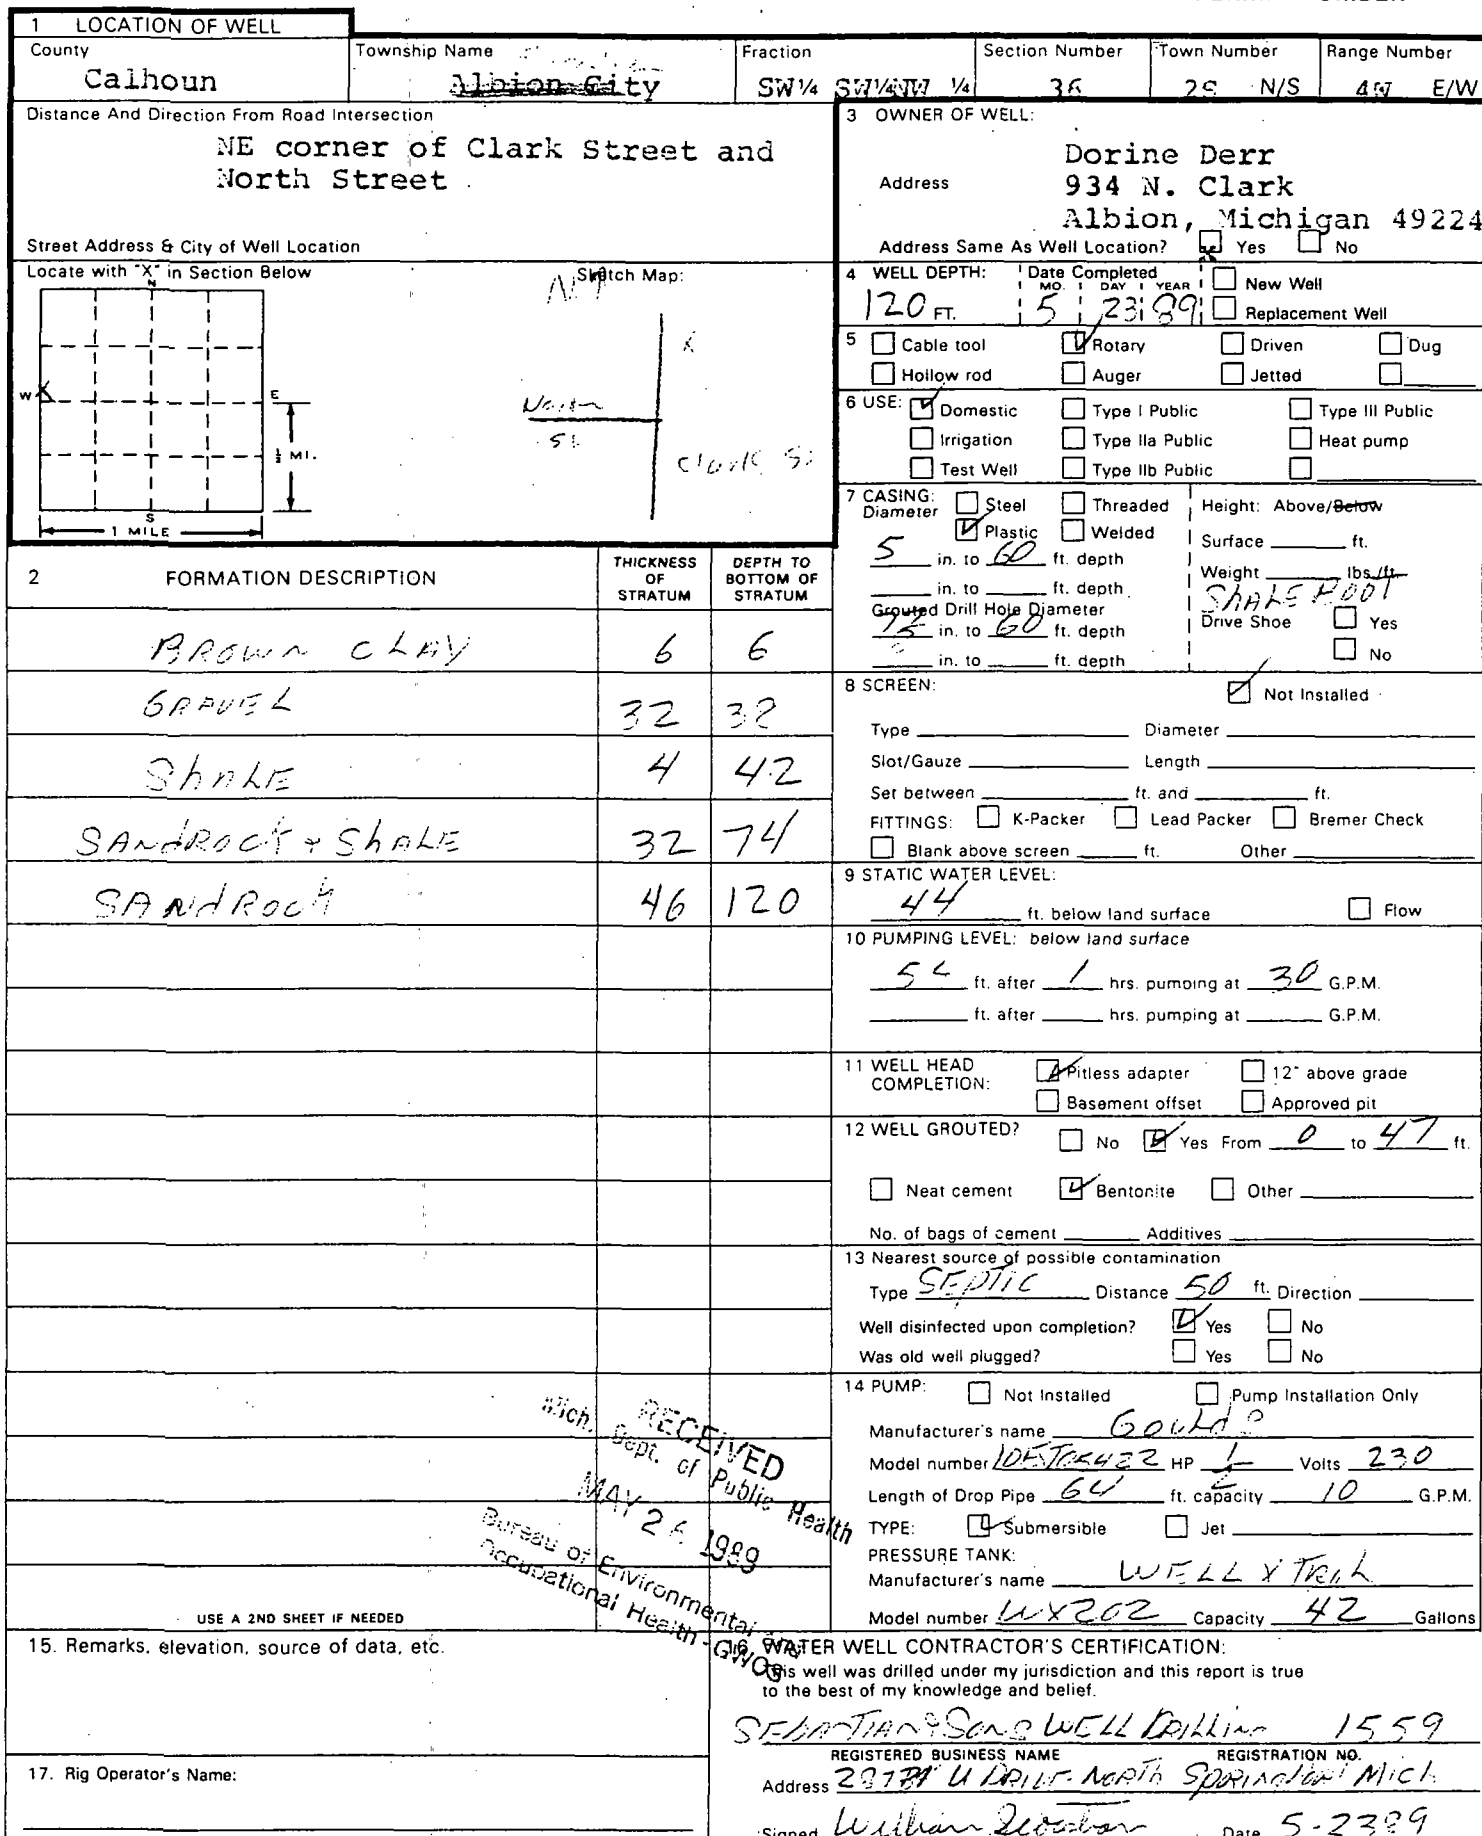 1 LOCATION OF WELL
County Township Name Fraction Section Number Town Number Range Number
Calhoun Albion City SW¼ SW¼NW ¼ 36 2S N/S 4W E/W
Distance And Direction From Road Intersection
NE corner of Clark Street and
North Street
Street Address & City of Well Location
Locate with "X" in Section Below
Sketch Map:
N
W X E
S
½ MI.
1 MILE
X
North
St
Clark St
3 OWNER OF WELL:
Dorine Derr
Address 934 N. Clark
Albion, Michigan 49224
Address Same As Well Location? Yes No
4 WELL DEPTH: Date Completed
MO. DAY YEAR New Well
120 FT. 5 23 89 Replacement Well
5 Cable tool Rotary Driven Dug
Hollow rod Auger Jetted
6 USE: Domestic Type I Public Type III Public
Irrigation Type IIa Public Heat pump
Test Well Type IIb Public
7 CASING: Steel Threaded Height: Above/Below
Diameter Plastic Welded Surface ft.
5 in. to 60 ft. depth Weight lbs./ft.
in. to ft. depth ShALE Boot
Grouted Drill Hole Diameter Drive Shoe Yes
in. to 60 ft. depth No
in. to ft. depth
2 FORMATION DESCRIPTION THICKNESS OF STRATUM DEPTH TO BOTTOM OF STRATUM
BROWN CLAY 6 6
GRAVEL 32 38
ShALE 4 42
SANdROCK + ShALE 32 74
SANdRocK 46 120
USE A 2ND SHEET IF NEEDED
8 SCREEN: Not Installed
Type Diameter
Slot/Gauze Length
Set between ft. and ft.
FITTINGS: K-Packer Lead Packer Bremer Check
Blank above screen ft. Other
9 STATIC WATER LEVEL:
44 ft. below land surface Flow
10 PUMPING LEVEL: below land surface
ft. after 1 hrs. pumping at 30 G.P.M.
ft. after hrs. pumping at G.P.M.
11 WELL HEAD Pitless adapter 12" above grade
COMPLETION: Basement offset Approved pit
12 WELL GROUTED? No Yes From 0 to 47 ft.
Neat cement Bentonite Other
No. of bags of cement Additives
13 Nearest source of possible contamination
Type SEPTIC Distance 50 ft. Direction
Well disinfected upon completion? Yes No
Was old well plugged? Yes No
14 PUMP: Not Installed Pump Installation Only
Manufacturer's name Goulds
Model number HP ½ Volts 230
Length of Drop Pipe ft. capacity 10 G.P.M.
TYPE: Submersible Jet
PRESSURE TANK:
Manufacturer's name WELL X TROL
Model number WX202 Capacity 42 Gallons
RECEIVED
Mich. Dept. of Public Health
MAY 26 1989
Bureau of Environmental and
Occupational Health - GWQS
15. Remarks, elevation, source of data, etc.
17. Rig Operator's Name:
16. WATER WELL CONTRACTOR'S CERTIFICATION:
This well was drilled under my jurisdiction and this report is true
to the best of my knowledge and belief.
SEbASTIAN & SONS WELL DRILLING 1559
REGISTERED BUSINESS NAME REGISTRATION NO.
Address U DRIVE NORTH Springport Mich
Signed William Sebastian Date 5-2389